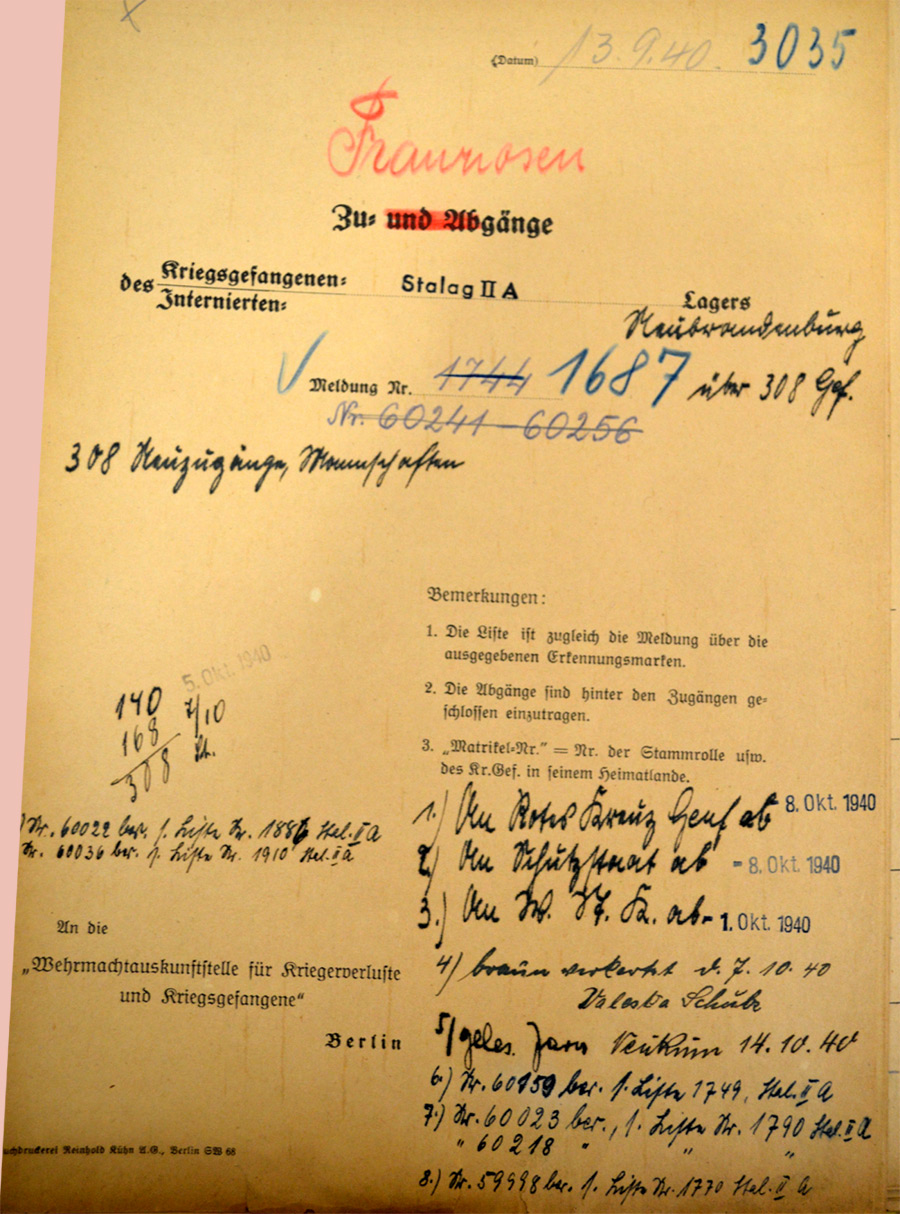 (Datum) 13.9.40. 3035
Franzosen
Zu= und Abgänge
des Kriegsgefangenen= Stalag II A
Internierten= Lagers
Neubrandenburg
Meldung Nr. 1744 1687 über 308 Gef.
Nr. 60241 - 60256
308 Neuzugänge, Mannschaften
Bemerkungen:
1. Die Liste ist zugleich die Meldung über die
ausgegebenen Erkennungsmarken.
2. Die Abgänge sind hinter den Zugängen ge=
schlossen einzutragen.
3. „Matrikel=Nr.“ = Nr. der Stammrolle usw.
des Kr.Gef. in seinem Heimatlande.
5. Okt. 1940
140 7/10
168
308
Nr. 60022 ber. s. Liste Nr. 1886 Stal. II A
Nr. 60036 ber. s. Liste Nr. 1910 Stal. II A
1.) An Rotes Kreuz Genf ab 8. Okt. 1940
2.) An Schutzstaat ab - 8. Okt. 1940
3.) An W. St. K. ab - 1. Okt. 1940
An die
„Wehrmachtauskunftstelle für Kriegerverluste
und Kriegsgefangene“
Berlin
4) braun verkartet d. 7.10.40
5/ geles. 14.10.40
6.) Nr. 60159 ber. s. Liste 1749, Stal. II A
7.) Nr. 60023 ber., s. Liste Nr. 1790 Stal. II A
" 60218 " " "
8.) Nr. 59998 ber. s. Liste Nr. 1770 Stal. II A
uchdruckerei Reinhold Kühn A.G., Berlin SW 68